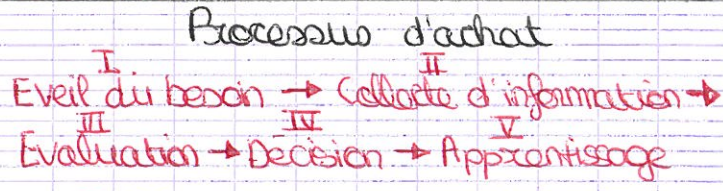 Processus d'achat
I II
Eveil du besoin → Collecte d'information →
III IV V
Evaluation → Décision → Apprentissage